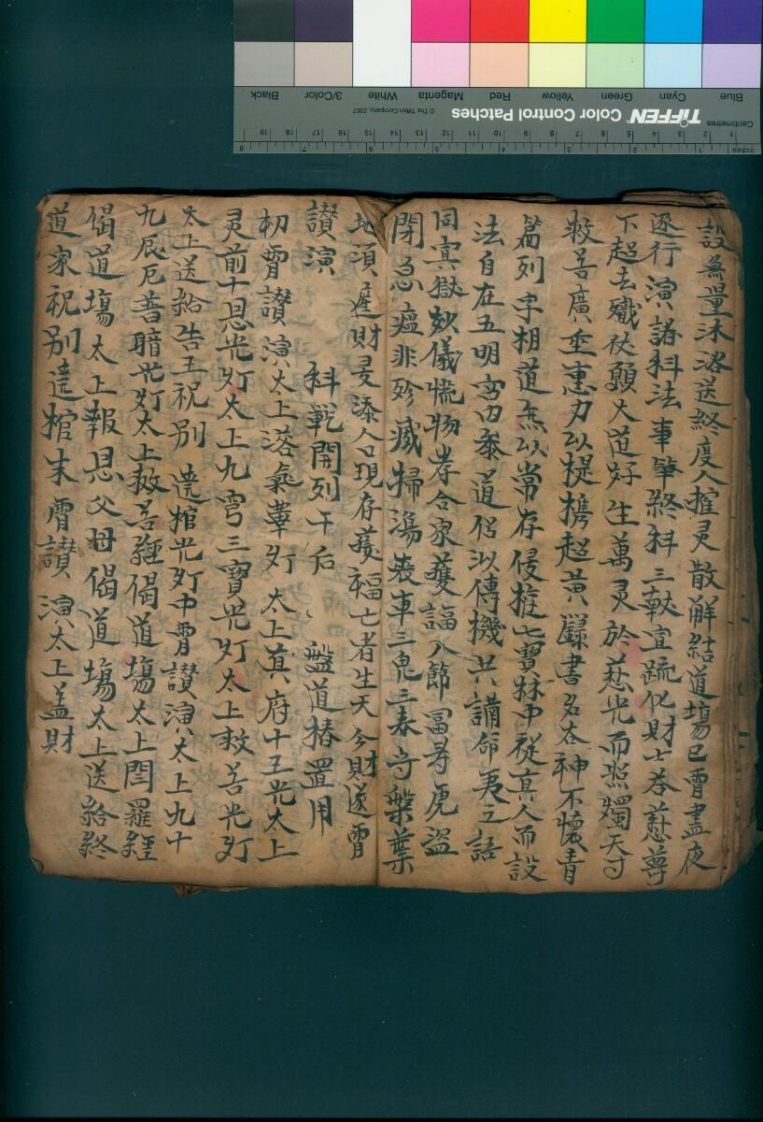 設無量沐浴送終度人摧灵散觧結道塲已霄盡夜
逐行演諸科法事肇終科三献宣疏化財士答慈尊
下超去 伏願大道好生萬灵於慈光而照燭天寸
救苦廣垂惠力以提携超黄籙書名太神不懷青
篇列字相道無以常存侵 七寳林中從真人而設
法自在五明宫内叅道侶以傳機共誦俞夷之語
同 獄妙儀慌物孝合家獲福八節冨寿虎盗
閉急瘟非殄滅掃蕩喪車三鬼三春守槃葉
地須 財 添人口現存獲福亡者生天今財送霄
讃演 科戰開列于后 盤道椿置用
初霄讃演太上落氣薰灯 太上真府十王光太上
灵前十恩光灯太上九穹三寳光灯太上救苦光灯
太上送給告王祝别 遶棺光灯中霄讃演太上九十
九辰厄普暗光灯太上救苦經偈道塲太上閏羅經
偈道塲太上報恩父母偈道塲太上送給終
道家祝别遶棺末霄讃演太上盖財
TIFFEN Color Control Patches
© The Tiffen Company, 2007
Centimetres
Inches
Blue Cyan Green Yellow Red Magenta White 3/Color Black